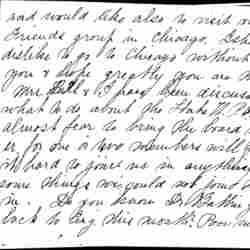 and would like also to visit
Friends group in Chicago.
dislike to go to Chicago without
you & hope greatly you are
Mr. Bell & I have been discuss
what to do about the
almost fear to bring the board
er for one or two members will
it hard to joint us in anything
some things we could not joint
in. Do you know Dr.
back to Eng this month. Poor